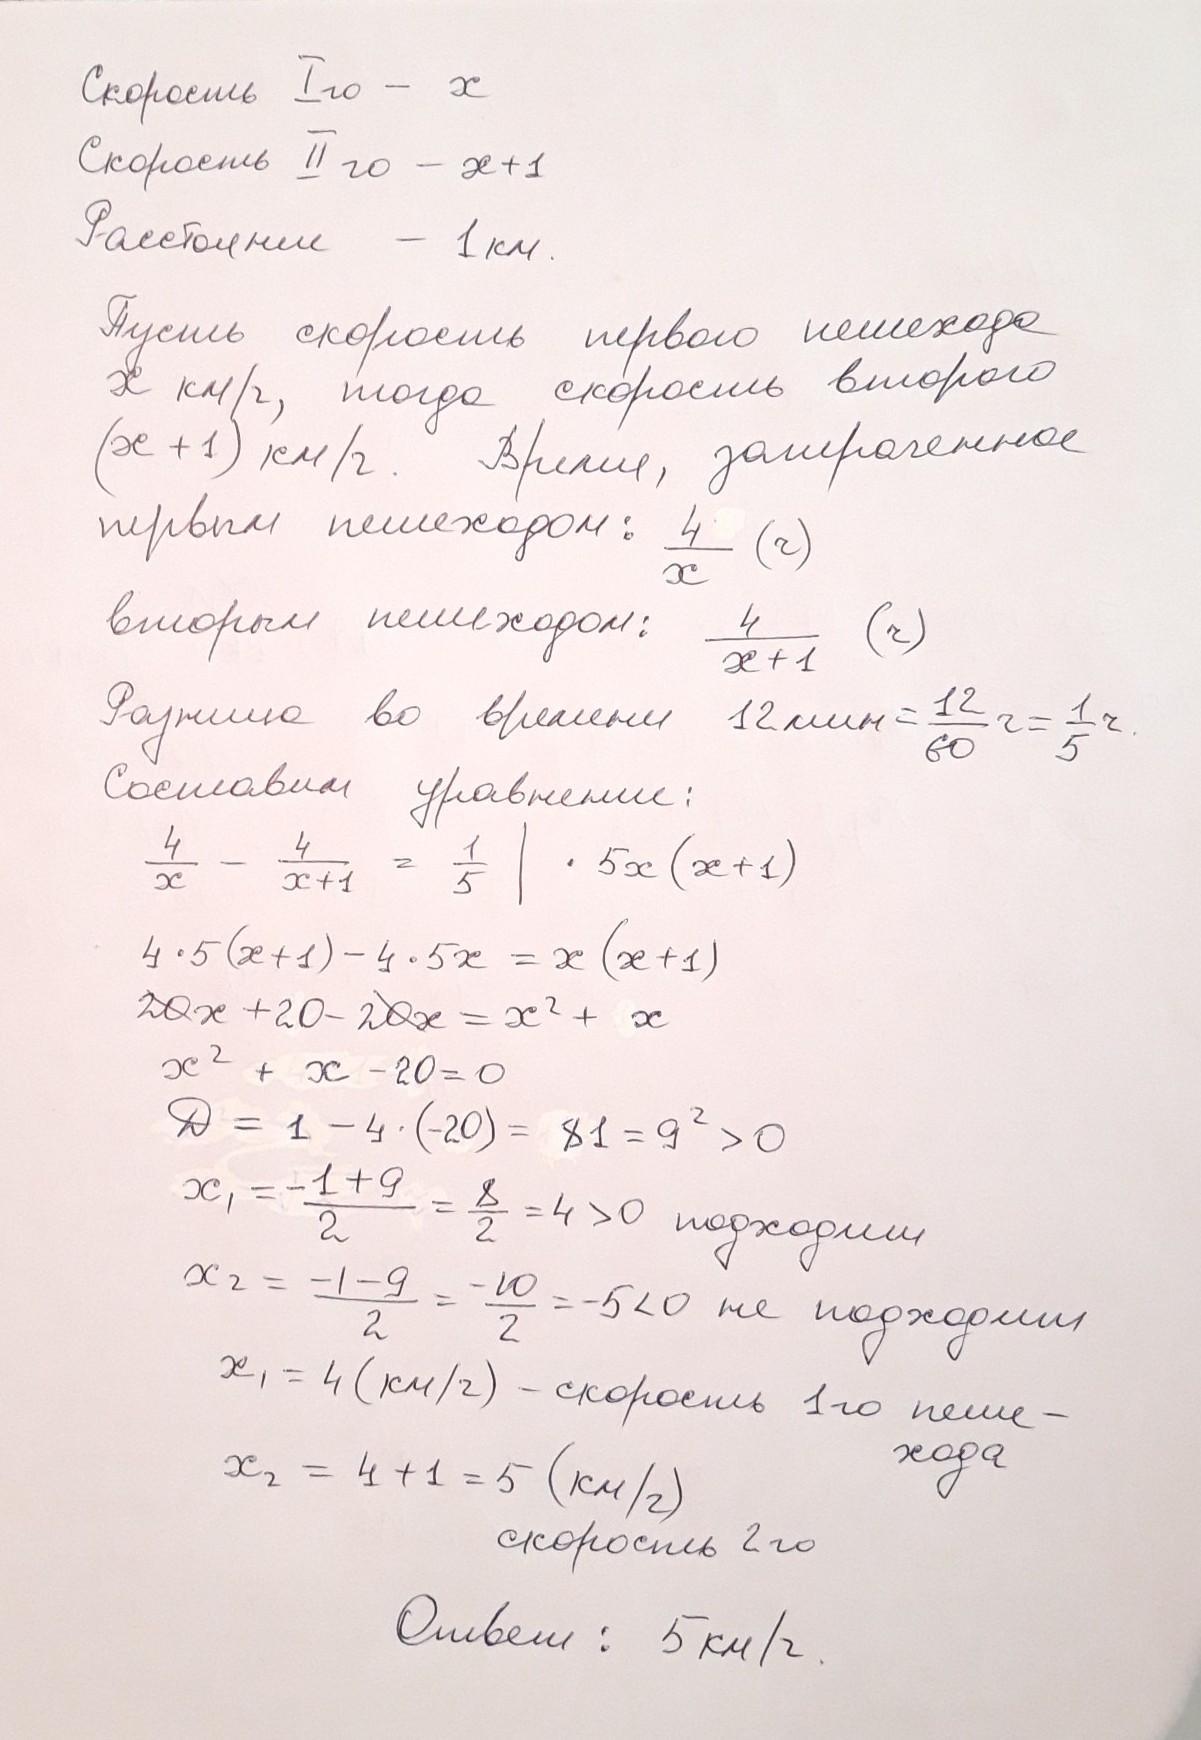 Скорость I го – x
Скорость II го – x+1
Расстояние – 1 км.
Пусть скорость первого пешехода
x км/ч, тогда скорость второго
(x+1) км/ч. Время, затраченное
первым пешеходом: 4/x (ч)
вторым пешеходом: 4/(x+1) (ч)
Разница во времени 12 мин = 12/60 ч = 1/5 ч.
Составим уравнение:
4/x – 4/(x+1) = 1/5 | · 5x(x+1)
4·5(x+1) – 4·5x = x(x+1)
20x + 20 – 20x = x² + x
x² + x – 20 = 0
D = 1 – 4·(-20) = 81 = 9² > 0
x₁ = (-1+9)/2 = 8/2 = 4 > 0 подходит
x₂ = (-1-9)/2 = -10/2 = -5 < 0 не подходит
x₁ = 4 (км/ч) – скорость 1го пеше-
хода
x₂ = 4+1 = 5 (км/ч)
скорость 2го
Ответ: 5 км/ч.